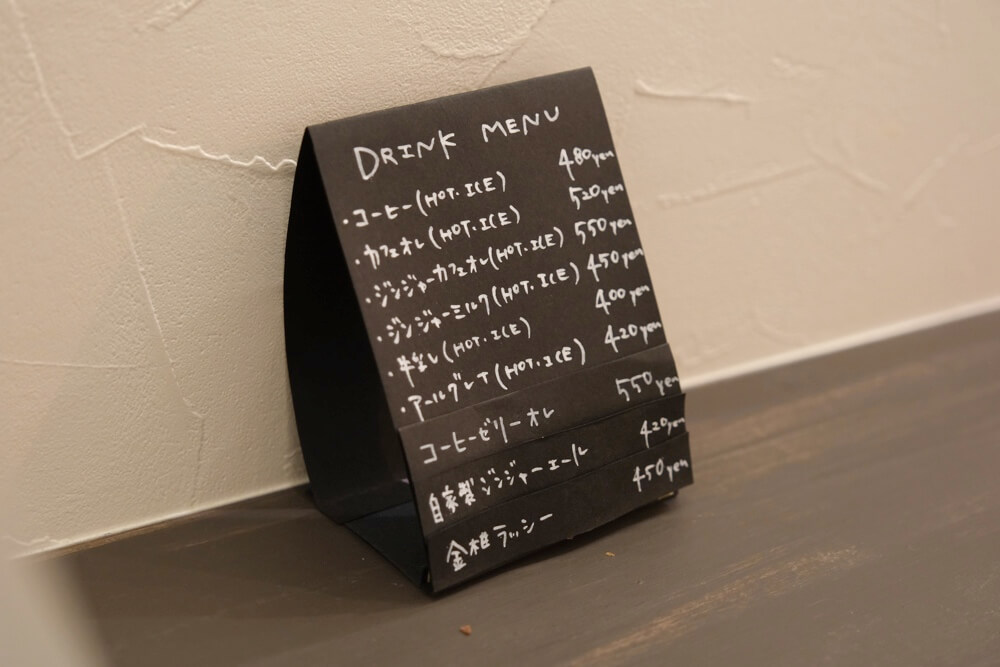 DRINK MENU
・コーヒー(HOT・ICE) 480yen
・カフェオレ(HOT・ICE) 520yen
・ジンジャーカフェオレ(HOT・ICE) 550yen
・ジンジャーミルク(HOT・ICE) 450yen
・牛乳(HOT・ICE) 400yen
・アールグレイ(HOT・ICE) 420yen
コーヒーゼリーオレ 550yen
自家製ジンジャーエール 420yen
金柑ラッシー 450yen